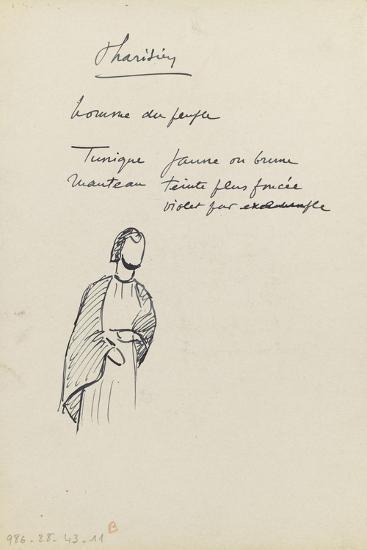 Pharisien
homme du peuple
Tunique jaune ou brune
manteau teinte plus foncée
violet par exemple
986-28-43-11 B